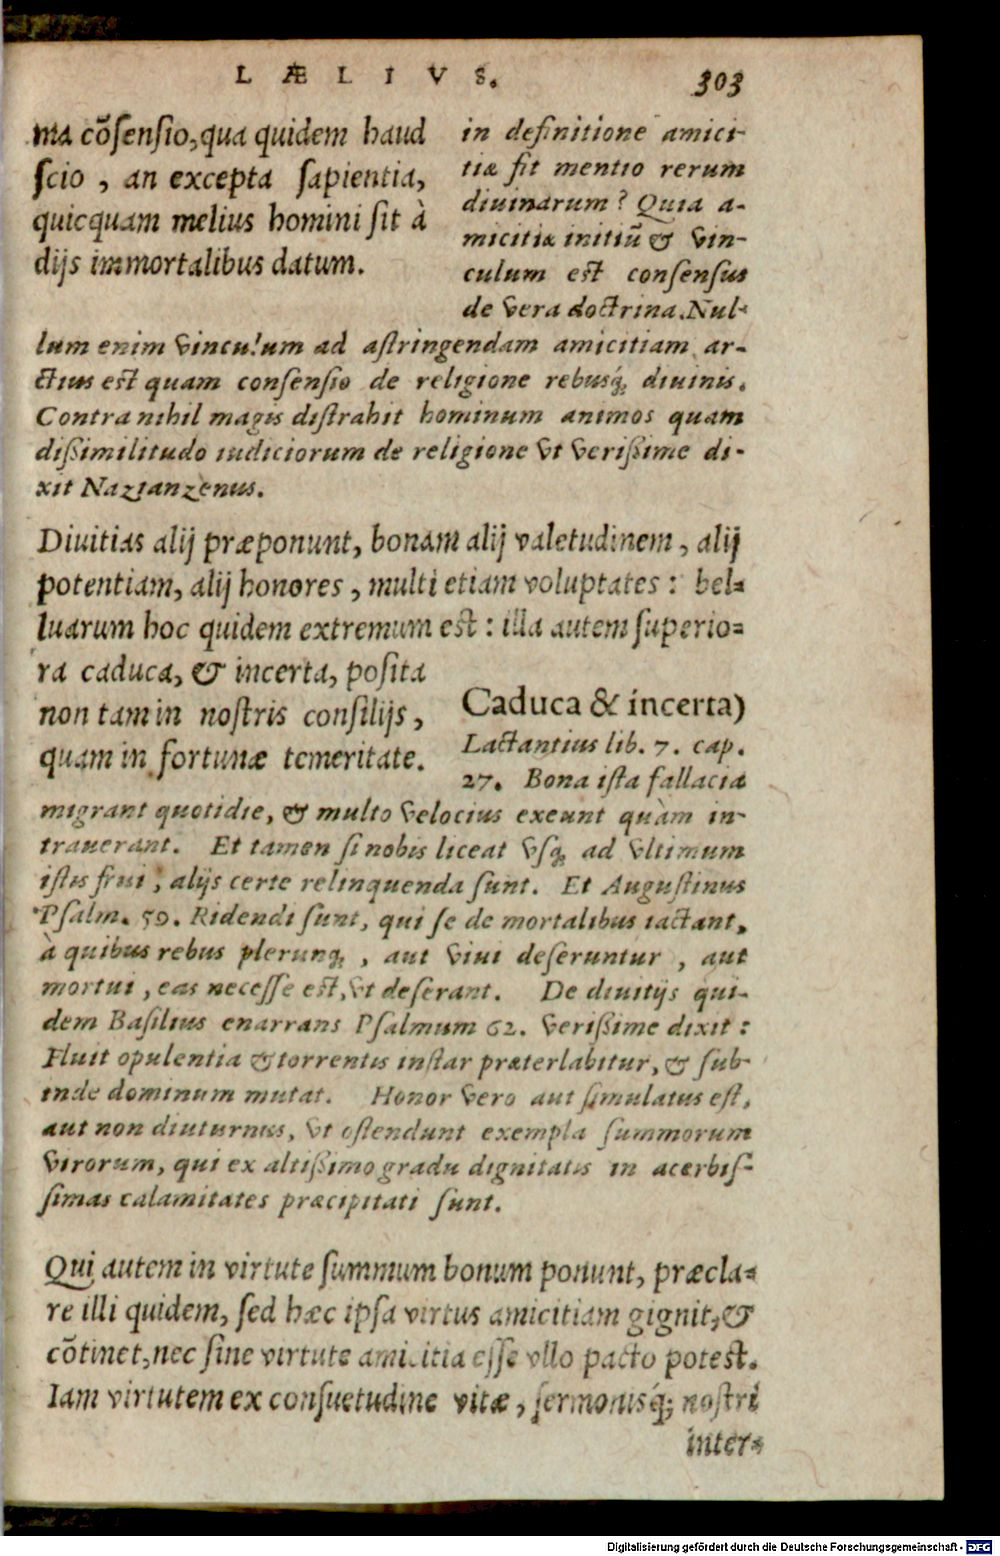 LÆLIVS. 303
ma cõsensio, qua quidem haud
scio, an excepta sapientia,
quicquam melius homini sit à
dijs immortalibus datum.
in definitione amici-
tiæ fit mentio rerum
diuinarum? Quia a-
micitiæ initiũ & vin-
culum est consensus
de vera doctrina. Nul-
lum enim vinculum ad astringendam amicitiam ar-
ctius est quam consensio de religione rebusq́; diuinis.
Contra nihil magis distrahit hominum animos quam
dißimilitudo iudiciorum de religione vt verißime di-
xit Nazianzenus.
Diuitias alij præponunt, bonam alij valetudinem, alij
potentiam, alij honores, multi etiam voluptates: bel-
luarum hoc quidem extremum est: illa autem superio-
ra caduca, & incerta, posita
non tam in nostris consilijs,
quam in fortunæ temeritate.
Caduca & incerta)
Lactantius lib. 7. cap.
27. Bona ista fallacia
migrant quotidie, & multo velocius exeunt quàm in-
trauerant. Et tamen si nobis liceat vsq; ad vltimum
istis frui, alijs certe relinquenda sunt. Et Augustinus
Psalm. 59. Ridendi sunt, qui se de mortalibus iactant,
à quibus rebus plerunq;, aut viui deseruntur, aut
mortui, eas necesse est, vt deserant. De diuitijs qui-
dem Basilius enarrans Psalmum 62. verißime dixit:
Fluit opulentia & torrentis instar præterlabitur, & sub-
inde dominum mutat. Honor vero aut simulatus est,
aut non diuturnus, vt ostendunt exempla summorum
virorum, qui ex altißimo gradu dignitatis in acerbis-
simas calamitates præcipitati sunt.
Qui autem in virtute summum bonum ponunt, præcla-
re illi quidem, sed hæc ipsa virtus amicitiam gignit, &
cõtinet, nec sine virtute amicitia esse vllo pacto potest.
Iam virtutem ex consuetudine vitæ, sermonisq́; nostri
inter-
Digitalisierung gefördert durch die Deutsche Forschungsgemeinschaft - DFG